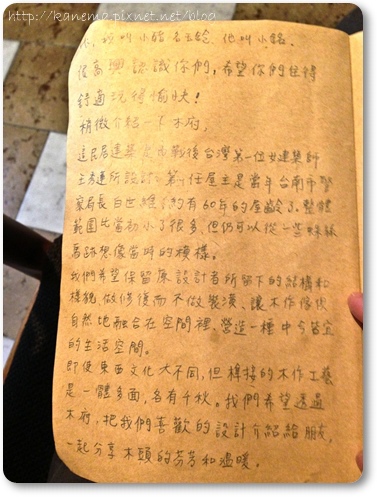 http://kanema.pixnet.net/blog
我叫小
他叫小銘。
很高興認識你們,希望你們住得
舒適玩得愉快!
稍微介紹一下木府,
這民居建築是戰後台灣第一位女建築師
王秀蓮所設計,第一任屋主是當年台南市警
察局長白世維,約有60年的屋齡了,整體
範圍比當初小了很多,但仍可以從一些蛛絲
馬跡想像當時的模樣。
我們希望保留原設計者所留下的結構和
樣貌,做修復而不做裝潢、讓木作傢俱
自然地融合在空間裡,營造一種中今皆宜
的生活空間。
即使東西文化大不同,但榫接的木作工藝
是一體多面,各有千秋。我們希望透過
木府,把我們喜歡的設計介紹給朋友,
一起分享木頭的芬芳和溫暖。